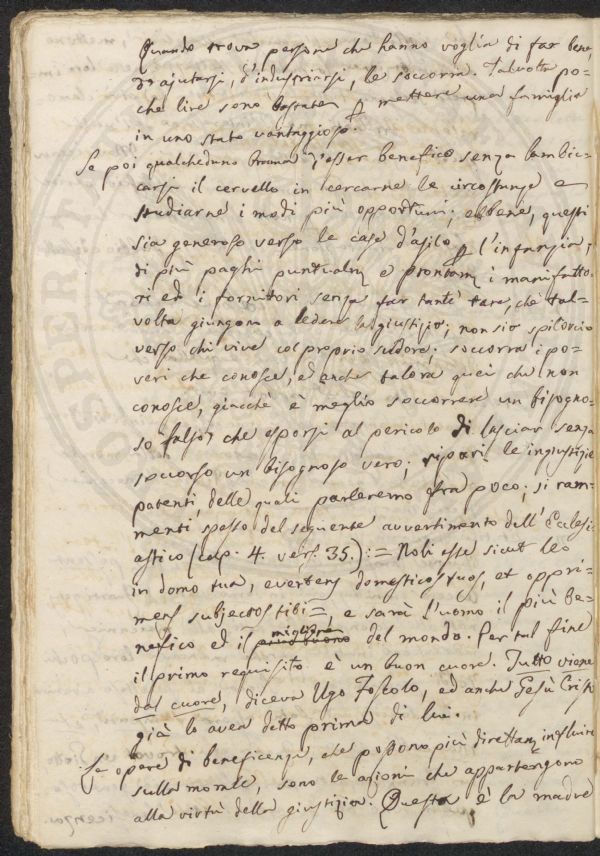 Quando trova persone che hanno voglia di far bene,
di ajutarsi, d'industriarsi, le soccorra. Talvolta po-
che lire sono bastate p mettere una famiglia
in uno stato vantaggioso.
Se poi qualcheduno brama d'esser benefico senza lambic-
carsi il cervello in cercarne le circostanze e
studiarne i modi più opportuni; ebbene, questi
sia generoso verso le case d'asilo p l'infanzia;
di più paghi puntualm e prontam i manifatto-
ri ed i fornitori senza far tante tare, che tal-
volta giungono a ledere la giustizia; non sia spilorcio
verso chi vive col proprio sudore; soccorra i po-
veri che conosce, ed anche talora quei che non
conosce, giacchè è meglio soccorrere un bisogno-
so falso, che esporsi al pericolo di lasciar senza
soccorso un bisognoso vero; ripari le ingiustizie
patenti, delle quali parleremo fra poco; si ram-
menti spesso del seguente avvertimento dell'Ecclesi-
astico (cap. 4. vers. 35.): = Noli esse sicut leo
in domo tua, evertens domesticos tuos, et oppri-
mens subjectos tibi =, e sarà l'uomo il più be-
nefico ed il migliore del mondo. Per tal fine
il primo requisito è un buon cuore. Tutto viene
dal cuore, diceva Ugo Foscolo, ed anche Gesù Cristo
già lo avea detto prima di lui.
Le opere di beneficenza, che possono più direttam influire
sulla morale, sono le azioni che appartengono
alla virtù della giustizia. Questa è la madre